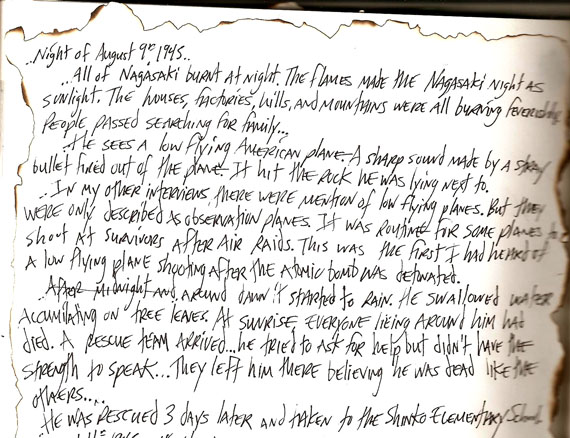 ..Night of August 9th, 1945..
...All of Nagasaki burnt at night. The flames made the Nagasaki night as
sunlight. The houses, factories, hills, and mountains were all burning feverishly.
People passed searching for family...
..He sees a low flying American plane. A sharp sound made by a stray
bullet fired out of the plane. It hit the rock he was lying next to.
..In my other interviews, there were mention of low flying planes. But they
were only described as observation planes. It was routine for some planes to
shoot at survivors after air raids. This was the first I had heard of
a low flying plane shooting after the atomic bomb was detonated.
..After midnight and around dawn it started to rain. He swallowed water
accumilating on tree leaves. At sunrise, everyone lieing around him had
died. A rescue team arrived...he tried to ask for help but didn't have the
strength to speak...They left him there believing he was dead like the
others....
He was rescued 3 days later and taken to the Shinko Elementary School